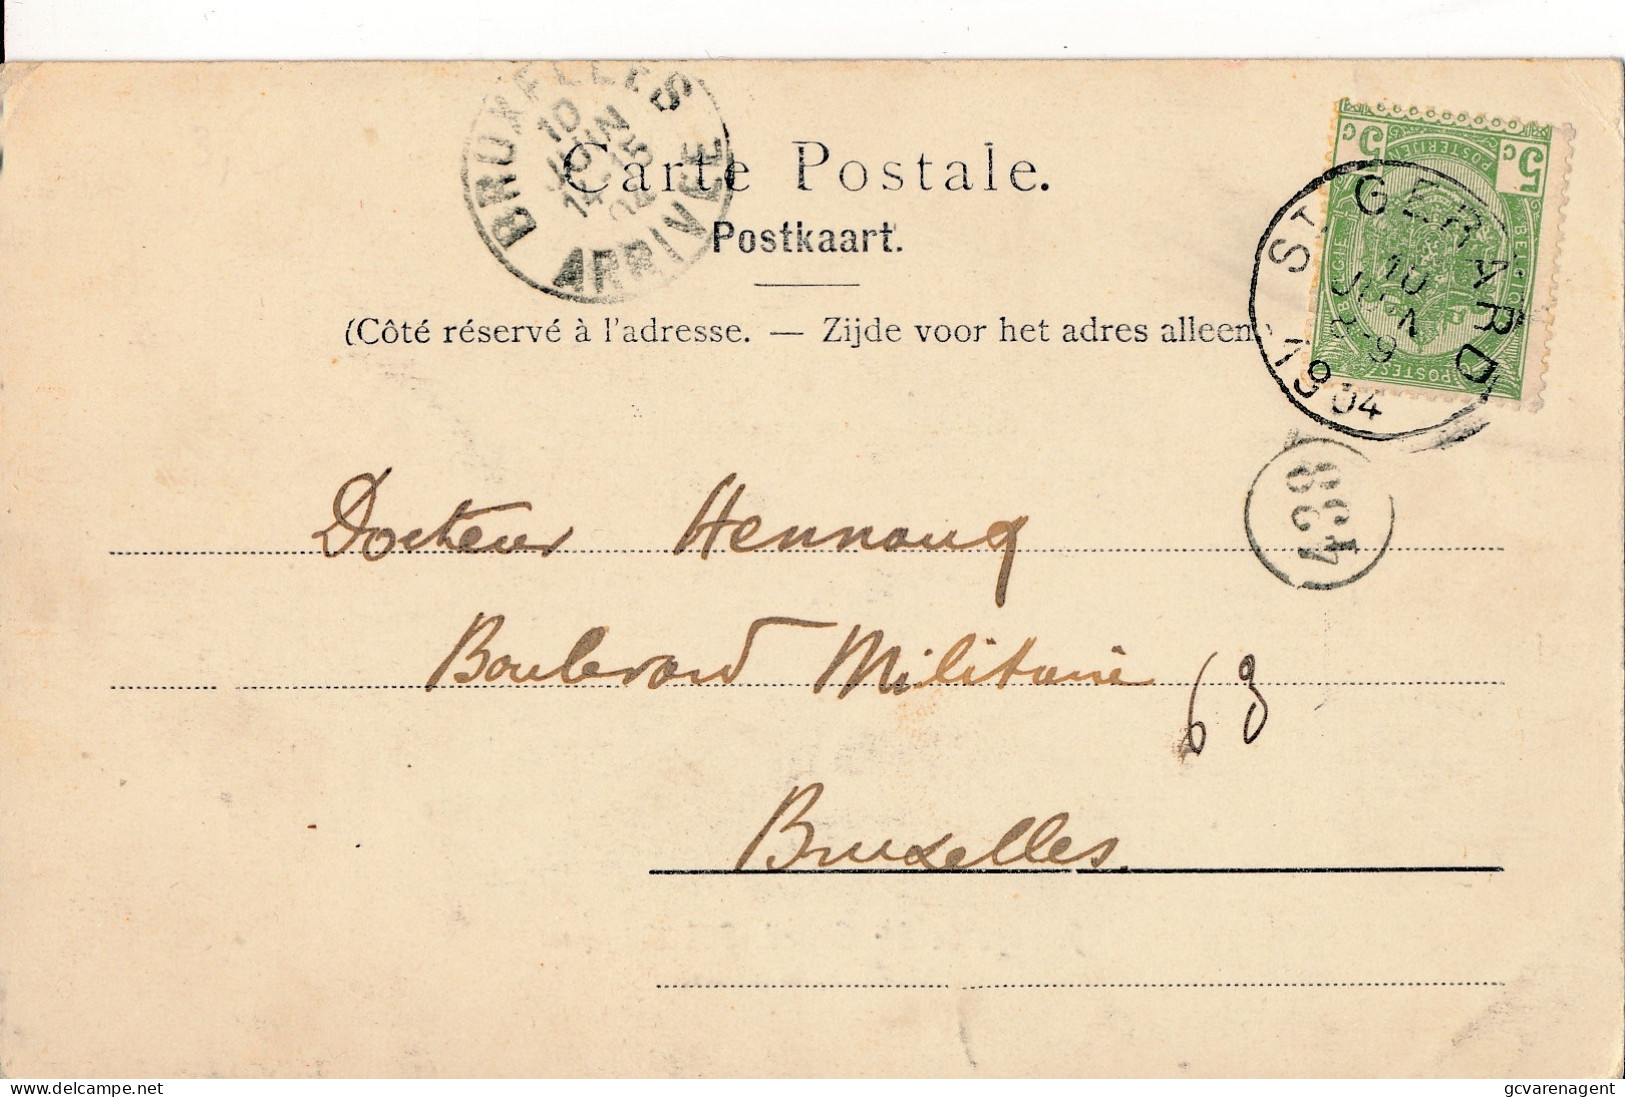 BRUXELLES
10
JUIN
14-15
04
ARRIVEE
Carte Postale.
Postkaart.
(Côté réservé à l'adresse. — Zijde voor het adres alleen
5 c 5 c
POSTERIJEN
BELGIQUE
POSTES
ST GERARD
10
JUIN
8-9
1904
438
Docteur Hennauq
Boulevard Militaire 63
Bruxelles.
delcampe.net
gcvarenagent